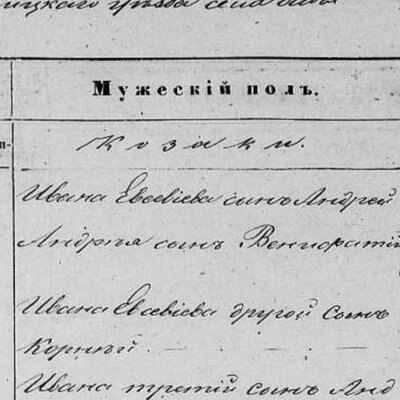 уѣзда села
Мужескій полъ.
Козаки.
Ивана Евсевіева сынъ Андрей
Андрея сынъ Венифатій
Ивана Евсевіева другой сынъ
Корнѣй.
Ивана третій сынъ Анд